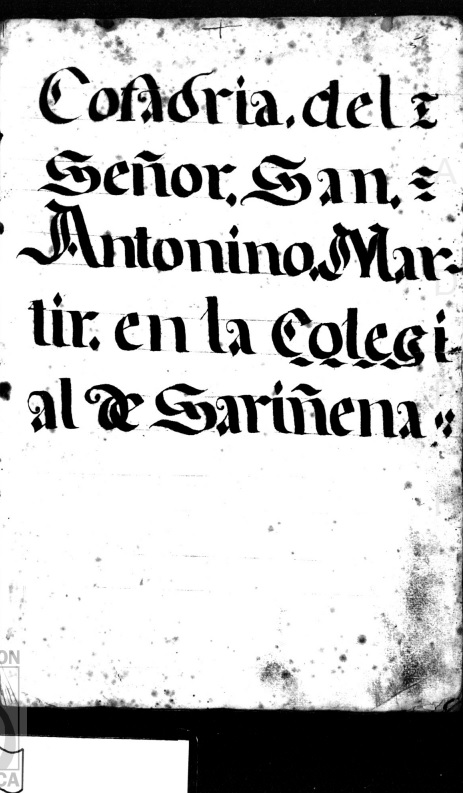 Cofadria, del
Señor, San,
Antonino, Mar-
tir. en la Colegi
al de Sariñena
ON
CA